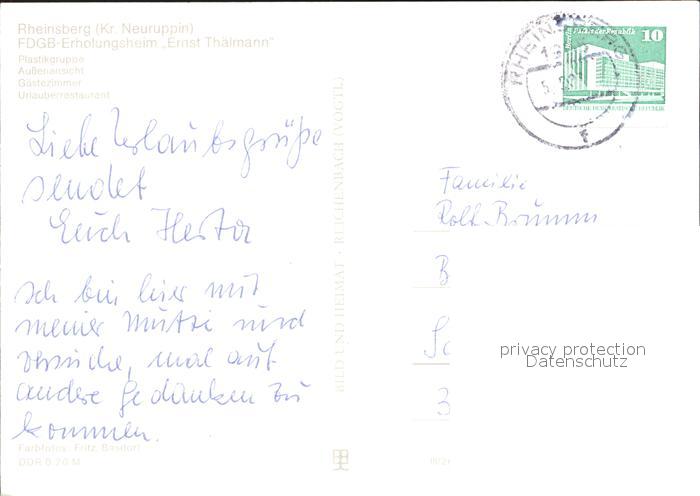 Rheinsberg (Kr. Neuruppin)
FDGB-Erholungsheim „Ernst Thälmann"
Plastikgruppe
Außenansicht
Gästezimmer
Urlauberrestaurant
Liebe Urlaubsgrüße
sendet
Euch Herta
Ich bin hier mit
meiner Mutti und
versuche, mal auf
andere Gedanken zu
kommen.
Farbfotos: Fritz, Basdorf
DDR 0,20 M
BILD UND HEIMAT · REICHENBACH (VOGTL)
RHEINSBERG
10
Berlin Palast der Republik
DEUTSCHE DEMOKRATISCHE REPUBLIK
Familie
Rolf
B
privacy protection
Datenschutz